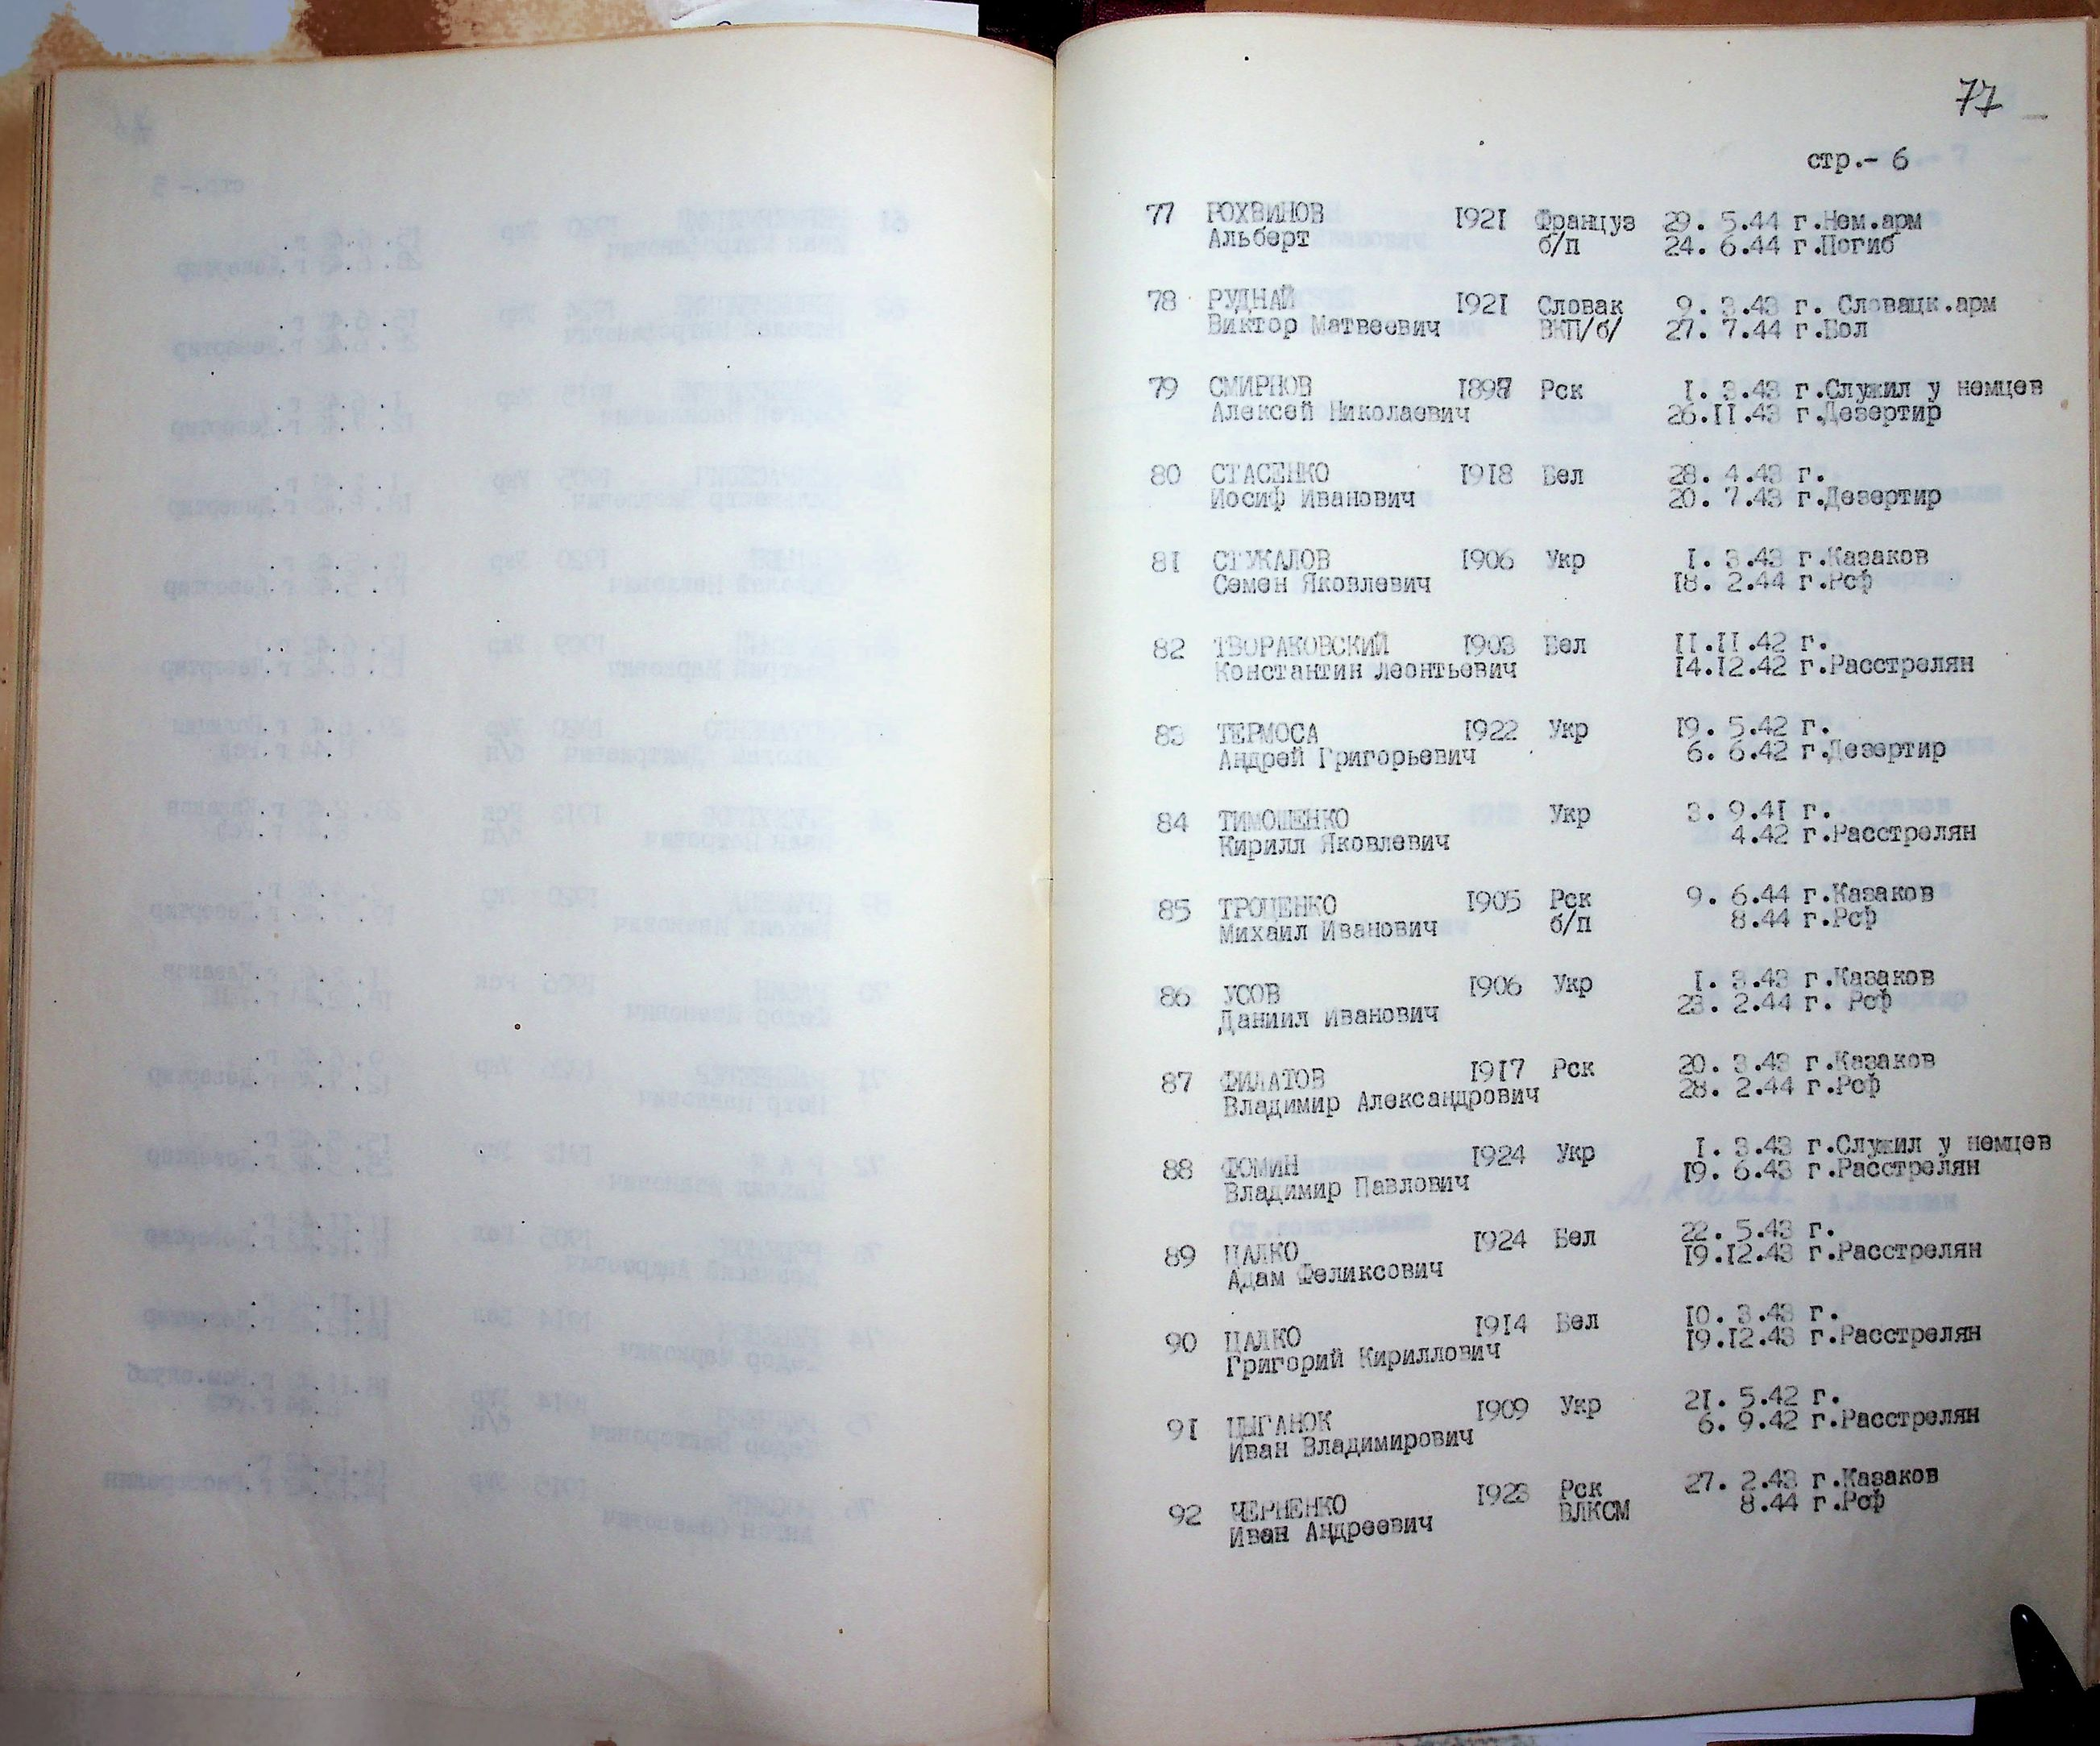 77
стр.- 6
77 РОХВИНОВ 1921 Француз 29. 5.44 г.Нем.арм
Альберт б/п 24. 6.44 г.Погиб
78 РУДНАЙ 1921 Словак 9. 3.43 г. Словацк.арм
Виктор Матвеевич ВКП/б/ 27. 7.44 г.Бол
79 СМИРНОВ Рск 1. 3.43 г.Служил у немцев
Алексей Николаевич 26.11.43 г.Дезертир
80 СТАСЕНКО 1918 Бел 28. 4.43 г.
Иосиф Иванович 20. 7.43 г.Дезертир
81 СТУКАЛОВ 1906 Укр 1. 3.43 г.Казаков
Семен Яковлевич 18. 2.44 г.Рсф
82 ТВОРАКОВСКИЙ 1903 Бел 11.11.42 г.
Константин Леонтьевич 14.12.42 г.Расстрелян
83 ТЕРМОСА 1922 Укр 19. 5.42 г.
Андрей Григорьевич 6. 6.42 г.Дезертир
84 ТИМОШЕНКО Укр 3. 9.41 г.
Кирилл Яковлевич 4.42 г.Расстрелян
85 ТРОЦЕНКО 1905 Рск 9. 6.44 г.Казаков
Михаил Иванович б/п 8.44 г.Рсф
86 УСОВ 1906 Укр 1. 3.43 г.Казаков
Даниил Иванович 23. 2.44 г. Рсф
87 ФИЛАТОВ 1917 Рск 20. 3.43 г.Казаков
Владимир Александрович 28. 2.44 г.Рсф
88 ФОМИН 1924 Укр 1. 3.43 г.Служил у немцев
Владимир Павлович 19. 6.43 г.Расстрелян
89 ЦАЛКО 1924 Бел 22. 5.43 г.
Адам Феликсович 19.12.43 г.Расстрелян
90 ЦАЛКО 1914 Бел 10. 3.43 г.
Григорий Кириллович 19.12.43 г.Расстрелян
91 ЦЫГАНОК 1909 Укр 21. 5.42 г.
Иван Владимирович 6. 9.42 г.Расстрелян
92 ЧЕРНЕНКО 1923 Рск 27. 2.43 г.Казаков
Иван Андреевич ВЛКСМ 8.44 г.Рсф